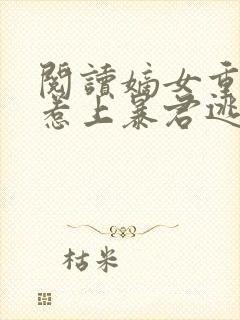 閱讀嫡女重
惹上暴君逃
枯米